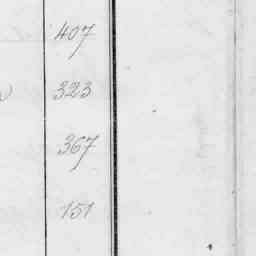 407
323
367
151